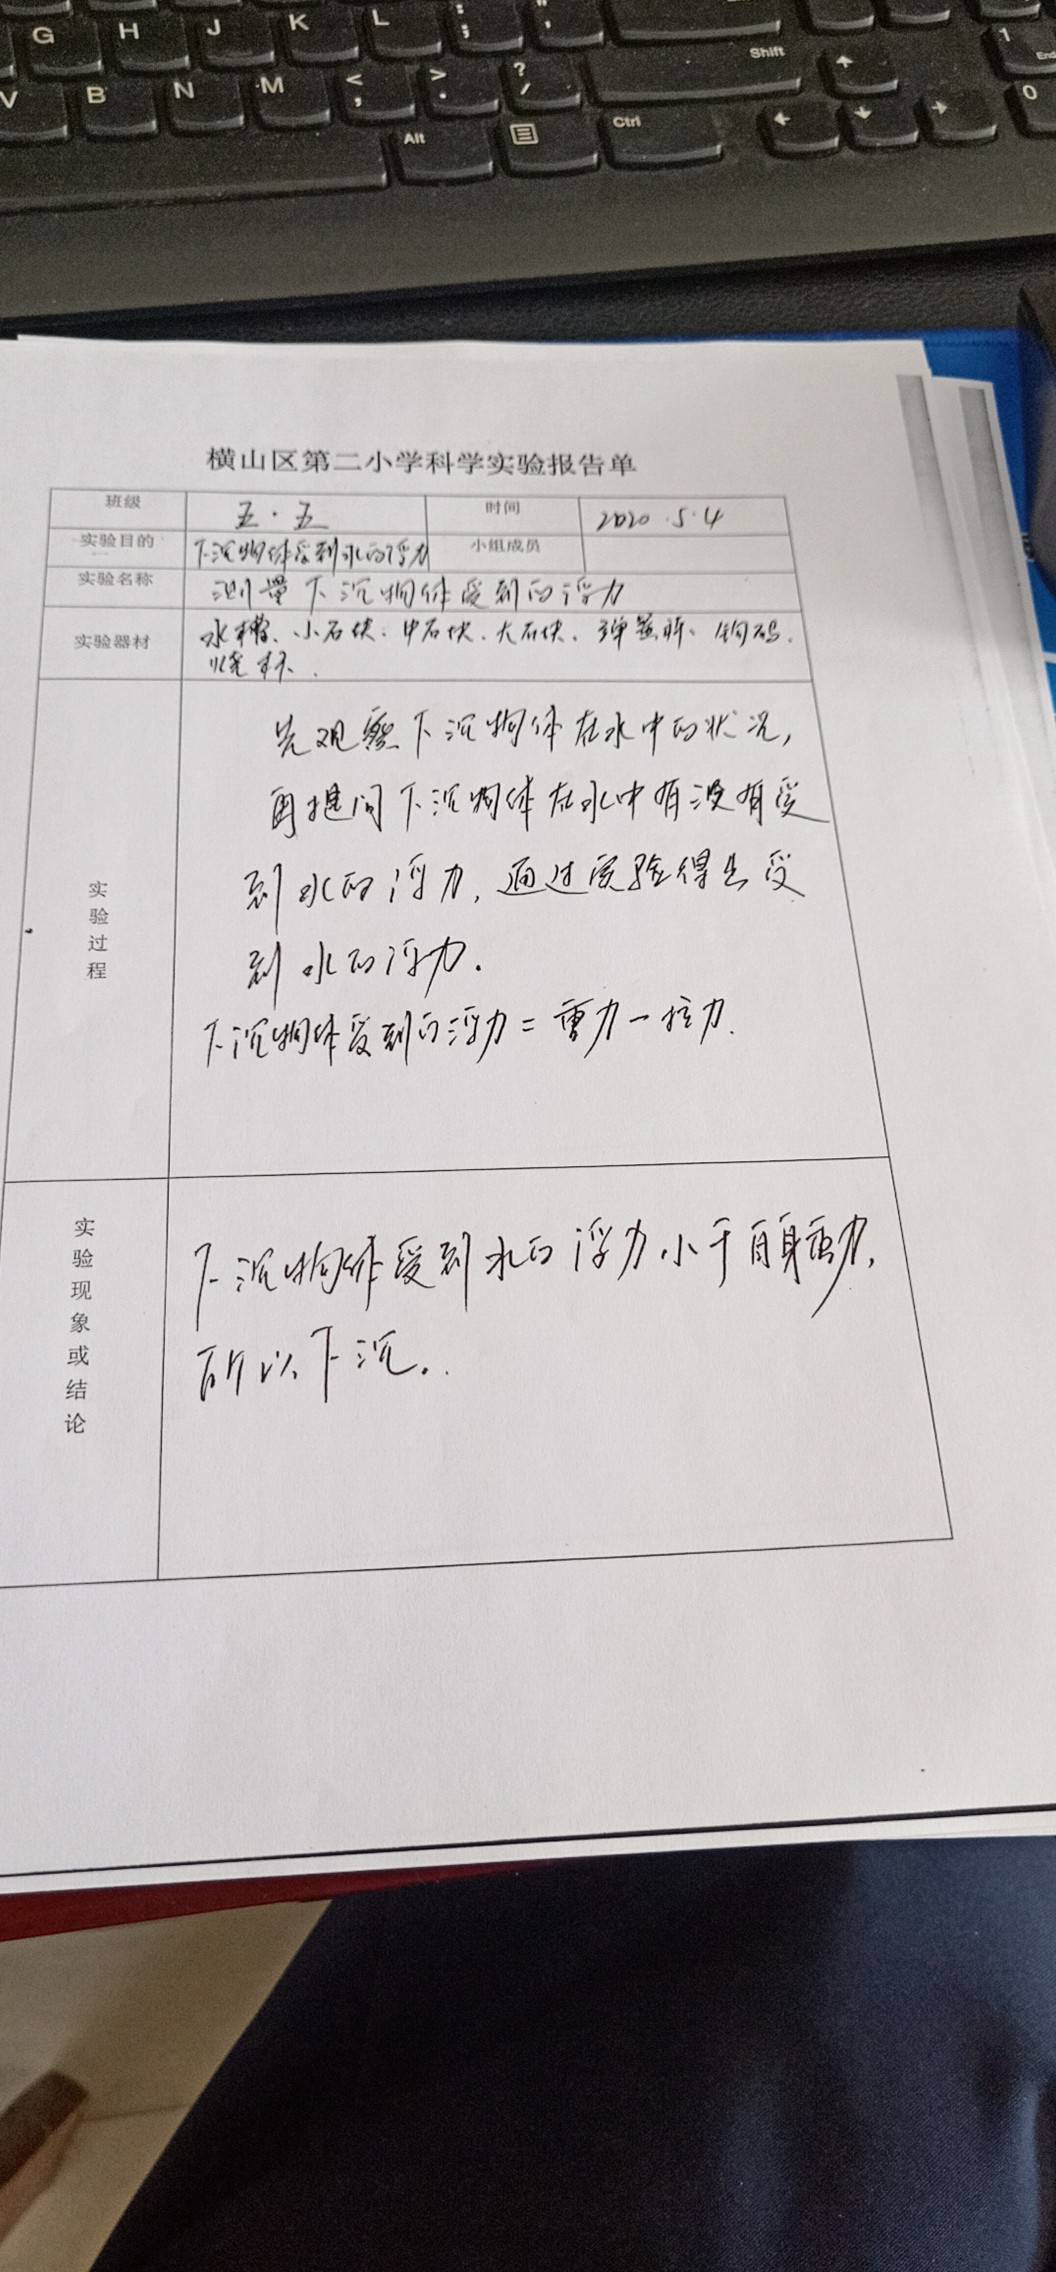 G H J K L : ; " '
Shift
1
End
V B N M < , > . ? /
0
Alt
Ctrl
横山区第二小学科学实验报告单
班级 五·五 时间 2020.5.4
实验目的 下沉物体受到水的浮力 小组成员
实验名称 测量下沉物体受到的浮力
实验器材 水槽、小石块、中石块、大石块、弹簧秤、钩码、
烧杯.
实验过程
先观察下沉物体在水中的状况,
再提问下沉物体在水中有没有受
到水的浮力,通过实验得出受
到水的浮力.
下沉物体受到的浮力=重力-拉力.
实验现象或结论
下沉物体受到水的浮力小于自身重力,
所以下沉.